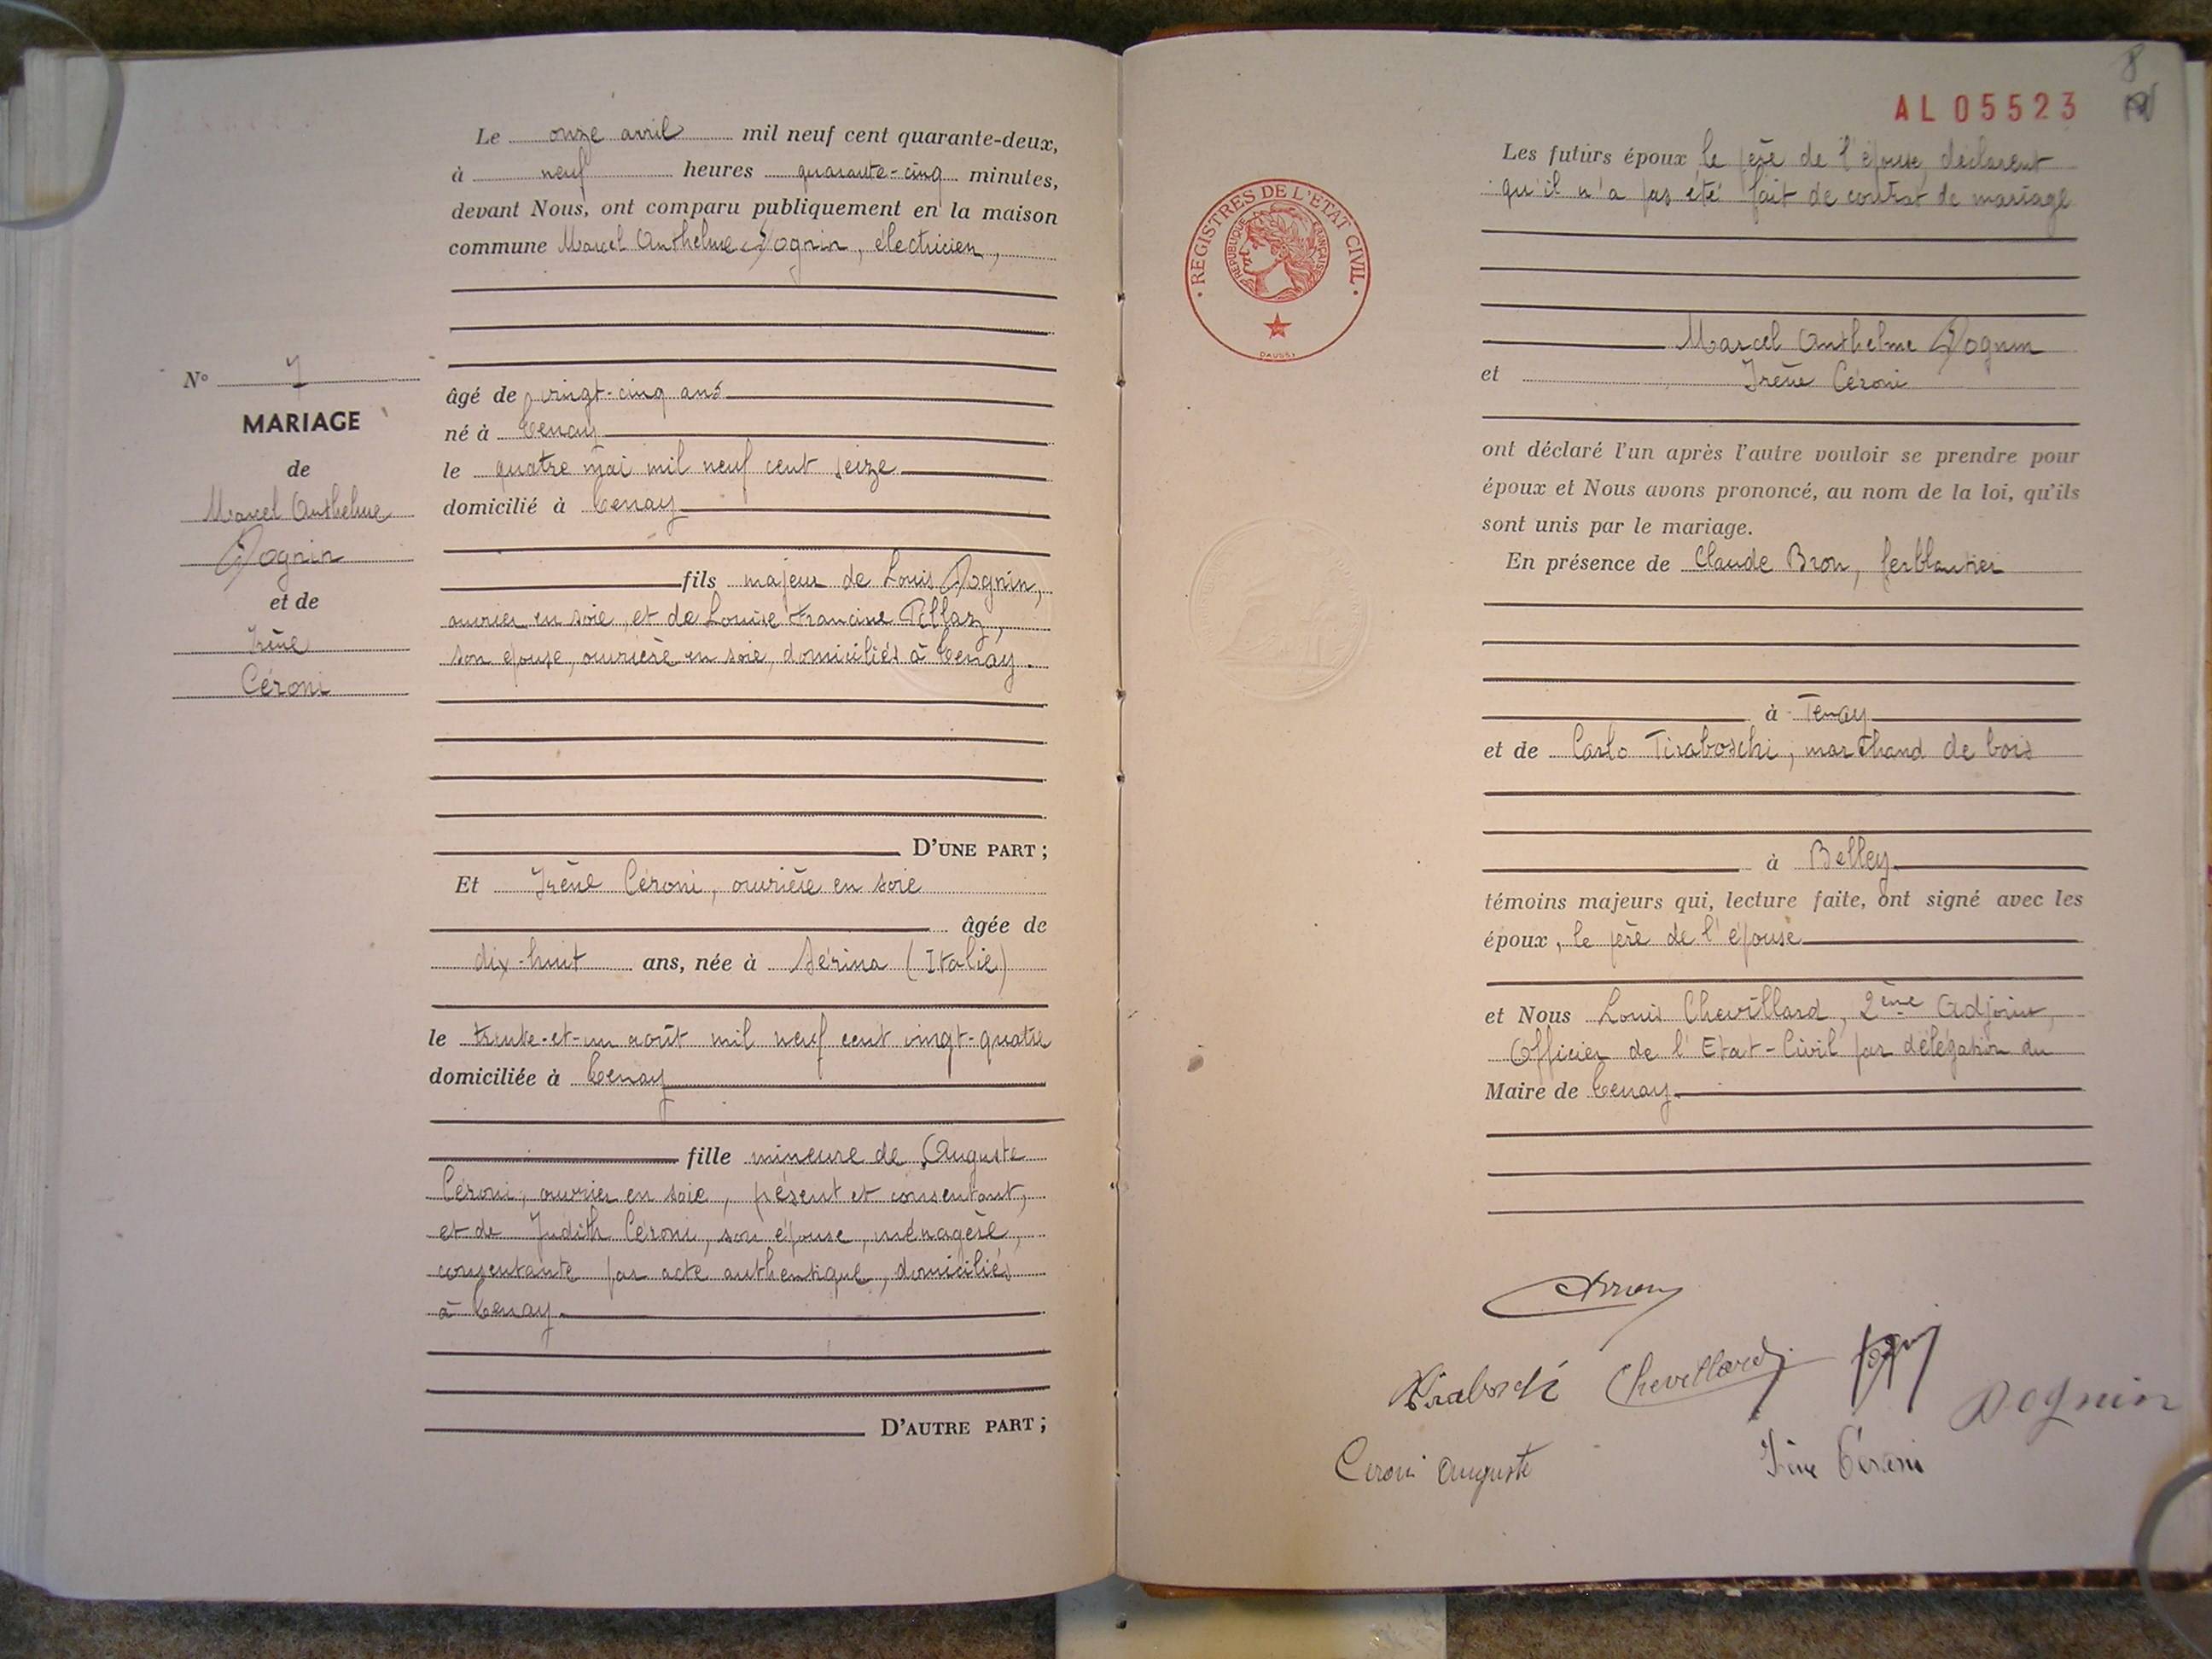 Le onze avril mil neuf cent quarante-deux,
à neuf heures quarante-cinq minutes,
devant Nous, ont comparu publiquement en la maison
commune Marcel Anthelme Dognin, électricien,
âgé de vingt-cinq ans
né à Tenay
le quatre mai mil neuf cent seize
domicilié à Tenay
fils majeur de Louis Dognin,
ouvrier en soie, et de Louise Francine Pellaz,
son épouse, ouvrière en soie, domiciliés à Tenay.
D'UNE PART ;
Et Irène Céroni, ouvrière en soie
âgée de
dix-huit ans, née à Sérina (Italie)
le trente-et-un août mil neuf cent vingt-quatre
domiciliée à Tenay
fille mineure de Auguste
Céroni, ouvrier en soie, présent et consentant,
et de Judith Céroni, son épouse, ménagère,
consentante par acte authentique, domiciliés
à Tenay.
D'AUTRE PART ;
N° 7
MARIAGE
de
Marcel Anthelme
Dognin
et de
Irène
Céroni
8
AL05523
REGISTRES DE L'ETAT CIVIL
REPUBLIQUE FRANÇAISE
DAUSSY
Les futurs époux le père de l'épouse déclarent
qu'il n'a pas été fait de contrat de mariage
Marcel Anthelme Dognin
et Irène Céroni
ont déclaré l'un après l'autre vouloir se prendre pour
époux et Nous avons prononcé, au nom de la loi, qu'ils
sont unis par le mariage.
En présence de Claude Bron, ferblantier
à Tenay
et de Carlo Tiraboschi, marchand de bois
à Belley
témoins majeurs qui, lecture faite, ont signé avec les
époux, le père de l'épouse
et Nous Louis Chevillard, 2ème Adjoint,
Officier de l'Etat-Civil par délégation du
Maire de Tenay.
Bron
Tiraboschi Chevillard Dognin
Ceroni Auguste Irène Céroni